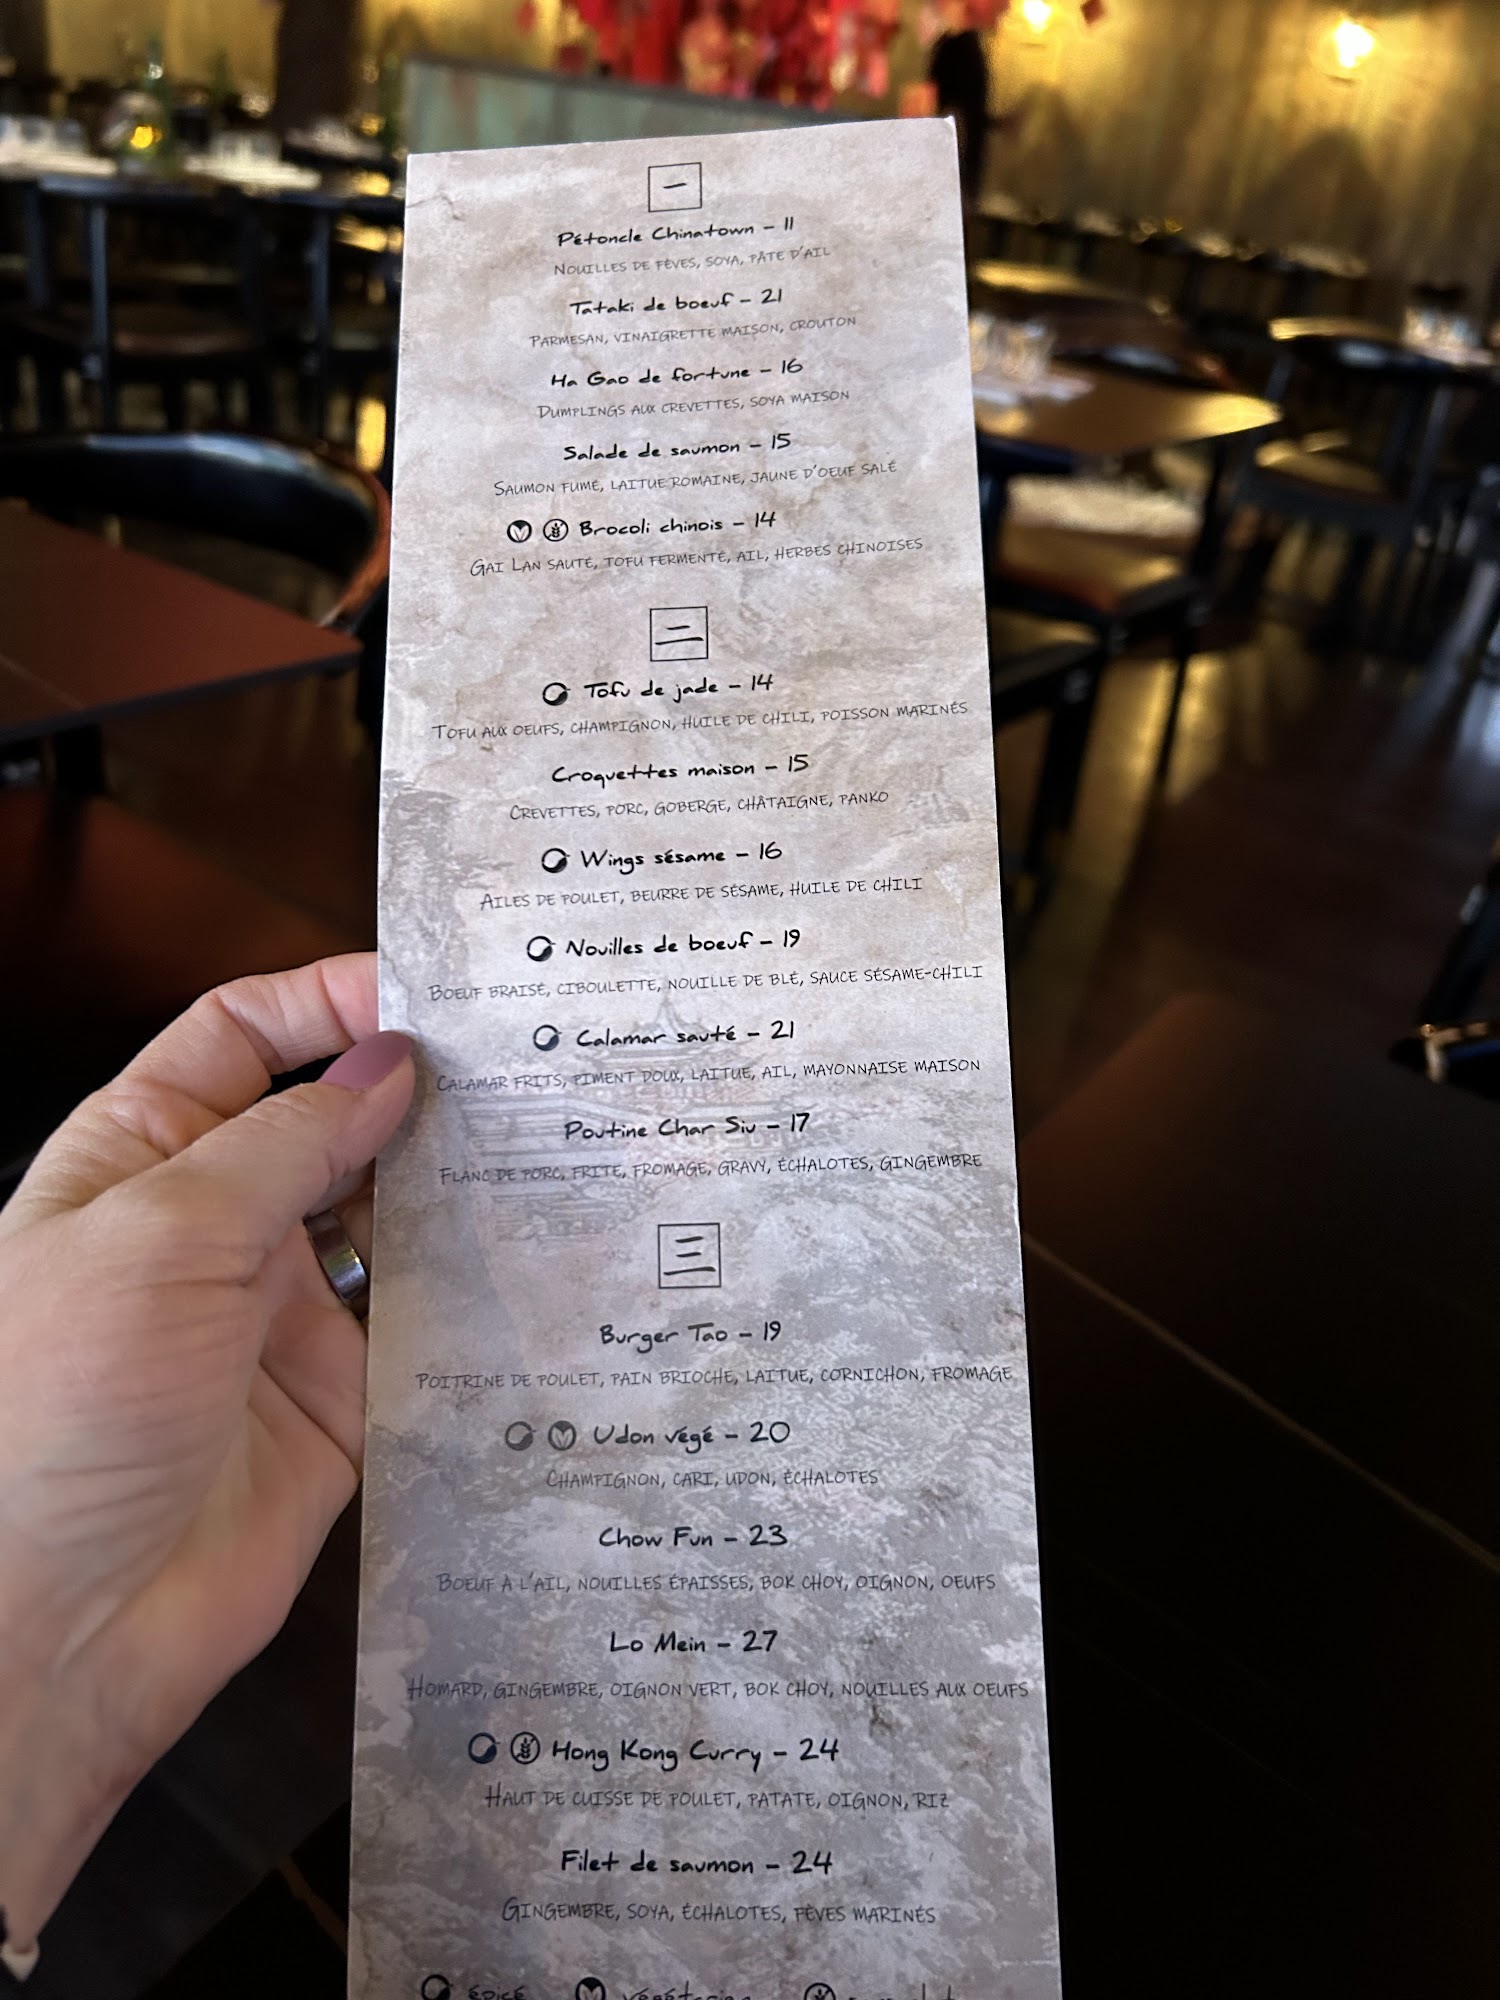 一
Pétoncle Chinatown - 11
NOUILLES DE FÈVES, SOYA, PÂTE D'AIL
Tataki de boeuf - 21
PARMESAN, VINAIGRETTE MAISON, CROUTON
Ha Gao de fortune - 16
DUMPLINGS AUX CREVETTES, SOYA MAISON
Salade de saumon - 15
SAUMON FUMÉ, LAITUE ROMAINE, JAUNE D'OEUF SALÉ
Brocoli chinois - 14
GAI LAN SAUTÉ, TOFU FERMENTÉ, AIL, HERBES CHINOISES
二
Tofu de jade - 14
TOFU AUX OEUFS, CHAMPIGNON, HUILE DE CHILI, POISSON MARINÉS
Croquettes maison - 15
CREVETTES, PORC, GOBERGE, CHÂTAIGNE, PANKO
Wings sésame - 16
AILES DE POULET, BEURRE DE SÉSAME, HUILE DE CHILI
Nouilles de boeuf - 19
BOEUF BRAISÉ, CIBOULETTE, NOUILLE DE BLÉ, SAUCE SÉSAME-CHILI
Calamar sauté - 21
CALAMAR FRITS, PIMENT DOUX, LAITUE, AIL, MAYONNAISE MAISON
Poutine Char Siu - 17
FLANC DE PORC, FRITE, FROMAGE, GRAVY, ÉCHALOTES, GINGEMBRE
三
Burger Tao - 19
POITRINE DE POULET, PAIN BRIOCHE, LAITUE, CORNICHON, FROMAGE
Udon végé - 20
CHAMPIGNON, CARI, UDON, ÉCHALOTES
Chow Fun - 23
BOEUF À L'AIL, NOUILLES ÉPAISSES, BOK CHOY, OIGNON, OEUFS
Lo Mein - 27
HOMARD, GINGEMBRE, OIGNON VERT, BOK CHOY, NOUILLES AUX OEUFS
Hong Kong Curry - 24
HAUT DE CUISSE DE POULET, PATATE, OIGNON, RIZ
Filet de saumon - 24
GINGEMBRE, SOYA, ÉCHALOTES, FÈVES MARINÉS
épicé végétarien